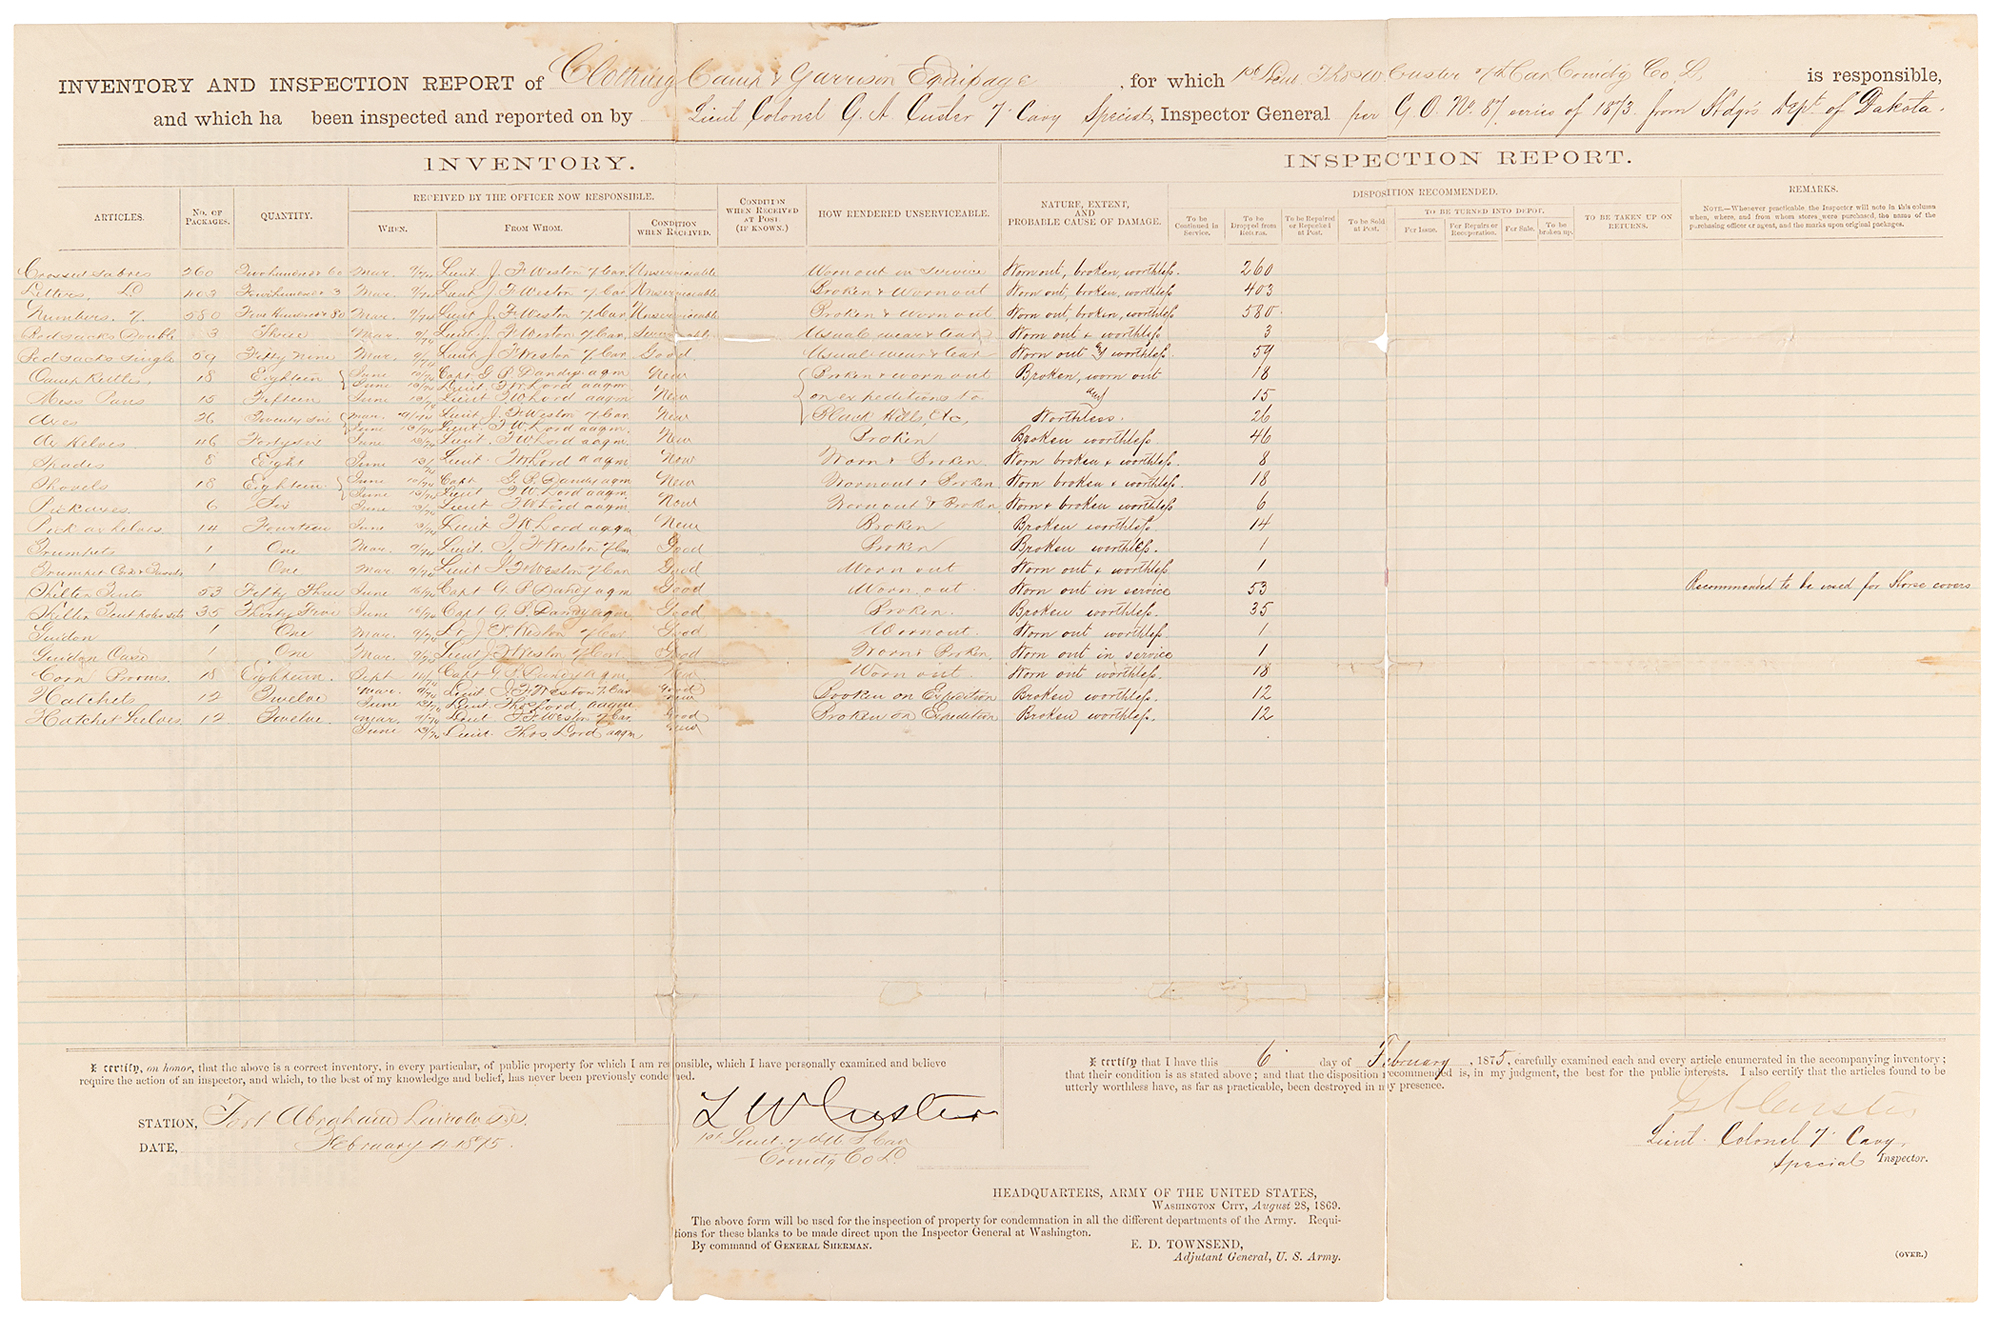 INVENTORY AND INSPECTION REPORT of Clothing Camp & Garrison Equipage, for which 1st Lieut Thos W Custer 7th Cav Comdg Co L, is responsible,
and which ha been inspected and reported on by Lieut Colonel G. A. Custer 7" Cavy Special, Inspector General per G. O. No. 87 series of 1873 from Hdqrs Dept of Dakota.
INVENTORY.
INSPECTION REPORT.
ARTICLES.
No. of Packages.
QUANTITY.
RECEIVED BY THE OFFICER NOW RESPONSIBLE.
When.
From Whom.
Condition when Received.
Condition when Received at Post. (if known.)
HOW RENDERED UNSERVICEABLE.
NATURE, EXTENT, AND PROBABLE CAUSE OF DAMAGE.
DISPOSITION RECOMMENDED.
To be Continued in Service.
To be Dropped from Returns.
To be Repaired or Repacked at Post.
To be Sold at Post.
TO BE TURNED INTO DEPOT.
For Issue.
For Repairs or Recuperation.
For Sale.
To be broken up.
TO BE TAKEN UP ON RETURNS.
REMARKS.
NOTE.—Whenever practicable, the Inspector will note in this column when, where, and from whom stores were purchased, the name of the purchasing officer or agent, and the marks upon original packages.
Crossed Sabres 260 Mar. 9/74 Lieut. J. F. Weston 7 Cav Unserviceable Worn out in service Worn out, broken, worthless. 260
Letters, L 403 Mar. 9/74 Lieut J. F. Weston 7 Cav Unserviceable Broken & Worn out Worn out, broken, worthless 403
Numbers. 7. 580 Mar. 9/74 Lieut J. F. Weston 7 Cav Unserviceable Broken & Worn out Worn out, broken, worthless 580.
Bedsacks Double 3 Three Mar 9/74 Lieut. J. F. Weston 7 Cav Usual wear & tear Worn out & worthless 3
Bedsacks Single 59 Fifty Nine Mar. 9/74 Lieut J. F. Weston 7 Cav Good Usual wear & tear Worn out & worthless. 59
Camp Kettles, 18 Eighteen June Capt G P Dandy aqm New Broken & worn out Broken, worn out 18
June Lieut. T. W. Lord aaqm
Mess Pans 15 Fifteen June Lieut T. W. Lord aaqm New on expeditions to and 15
Axes 26 Twenty six Mar. Lieut. J. F. Weston 7 Cav New Black Hills, Etc, Worthless. 26
June Lieut. T. W. Lord aaqm.
Ax helves 46 Forty six June Lieut. T. W. Lord aaqm New Broken Broken worthless 46
Spades 8 Eight June Lieut. T. W. Lord aaqm New Worn & Broken Worn broken & worthless. 8
Shovels 18 Eighteen June Capt G. P. Dandy aqm New Wornout & Broken Worn broken & worthless. 18
June Lieut T. W. Lord aaqm.
Pickaxes 6 Six June Lieut T. W. Lord aaqm New Wornout & Broken Worn & broken worthless 6
Pick ax helves. 14 Fourteen June Lieut T. W. Lord aaqm New Broken Broken worthless. 14
Trumpets 1 One Mar. 9/74 Lieut. J. F. Weston 7 Cav Good Broken Broken worthless. 1
Trumpet Cords & Tassels 1 One Mar 9/74 Lieut J. F. Weston 7 Cav Good Worn out Worn out & worthless. 1
Shelter Tents 53 Fifty Three June Capt G. P. Dandy aqm Good Worn out. Worn out in service 53 Recommended to be used for Horse covers
Shelter Tent poles sets 35 Thirty Five June Capt G. P. Dandy aqm Good Broken. Broken worthless. 35
Guidon 1 One Mar. 9/74 Lt J. F. Weston 7 Cav Good Wornout. Worn out worthless. 1
Guidon Case 1 One Mar. 9/74 Lieut J. F. Weston 7 Cav Good Worn & Broken. Worn out in service 1
Corn Brooms. 18 Eighteen. Sept Capt G P Dandy aqm. Worn out. Worn out worthless. 18
Hatchets 12 Twelve Mar. Lieut. J. F. Weston 7 Cav Good Broken on Expedition Broken worthless. 12
June Lieut. Thos Lord aaqm New
Hatchet helves 12 Twelve. Mar. Lieut J. F. Weston 7 Cav Good Broken on Expedition Broken worthless. 12
June Lieut. Thos Lord aaqm
I certify, on honor, that the above is a correct inventory, in every particular, of public property for which I am responsible, which I have personally examined and believe
require the action of an inspector, and which, to the best of my knowledge and belief, has never been previously condemned.
STATION, Fort Abraham Lincoln D.T.
DATE, February 1875.
T W Custer
1st Lieut. 7th U. S. Cav
Comdg Co L.
I certify that I have this 6" day of February, 1875, carefully examined each and every article enumerated in the accompanying inventory;
that their condition is as stated above; and that the disposition recommended is, in my judgment, the best for the public interests. I also certify that the articles found to be
utterly worthless have, as far as practicable, been destroyed in my presence.
G A Custer
Lieut. Colonel 7" Cavy.
Special Inspector.
HEADQUARTERS, ARMY OF THE UNITED STATES,
Washington City, August 28, 1869.
The above form will be used for the inspection of property for condemnation in all the different departments of the Army. Requi-
tions for these blanks to be made direct upon the Inspector General at Washington.
By command of General Sherman.
E. D. TOWNSEND,
Adjutant General, U. S. Army.
(OVER.)